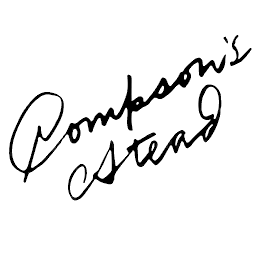 Compson's
Stead